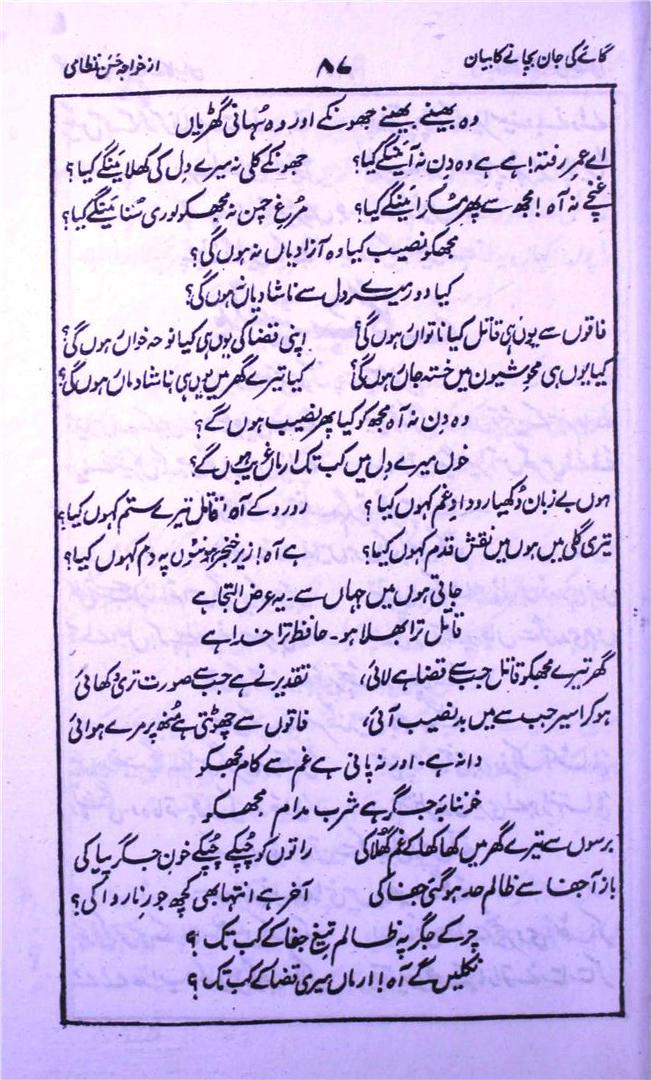 گائے کی جان بچانے کا بیان ۸۷ از خواجہ حسن نظامی
وہ بھینے بھینے جھونکے اور وہ سُہانی گھڑیاں
اے عمرِ رفتہ! ہے ہے وہ دن نہ آئینگے کیا؟ جھونکے کلی نہ میرے دل کی کھلائینگے کیا؟
غنچے نہ آہ! مجھ سے پھر مسکرائینگے کیا؟ مرغِ چمن نہ مجھکو لوری سُنائینگے کیا؟
مجھکو نصیب کیا وہ آزادیاں نہ ہوں گی؟
کیا دور میرے دل سے ناشادیاں ہوں گی؟
فاقوں سے یوں ہی قاتل کیا ناتواں ہوں گی؟ اپنی قضا کی یوں ہی کیا نوحہ خواں ہوں گی؟
کیا یوں ہی محوِ شیون میں خستہ جاں ہوں گی؟ کیا تیرے گھر میں یوں ہی ناشادماں ہوں گی؟
وہ دن نہ آہ مجھ کو کیا پھر نصیب ہوں گے؟
خوں میرے دل میں کب تک ارماں غریب ہوں گے؟
ہوں بے زبان دُکھیا رودادِ غم کہوں کیا؟ رو رو کے آہ! قاتل تیرے ستم کہوں کیا؟
تیری گلی میں ہوں میں نقشِ قدم کہوں کیا؟ ہے آہ! زیرِ خنجر ہونٹوں پہ دم کہوں کیا؟
جاتی ہوں میں جہاں سے۔ یہ عرض التجا ہے
قاتل ترا بھلا ہو۔ حافظ ترا خدا ہے
گھر تیرے مجھکو قاتل جب سے قضا ہے لائی، تقدیر نے ہے جب سے صورت تری دکھائی
ہو کر اسیر جب سے میں بدنصیب آئی، فاقوں سے چھوٹتی ہے مُنھ پر مرے ہوائی
دانہ ہے۔ اور نہ پانی ہے غم سے کام مجھکو
خونابۂ جگر ہے شربِ مدام مجھکو
برسوں سے تیرے گھر میں کھا کھا کے غم گھُلا کی راتوں کو چُپکے چُپکے خونِ جگر پیا کی
باز آ جفا سے ظالم حد ہو گئی جفا کی آخر ہے انتہا بھی کچھ جورِ ناروا کی؟
چرکے جگر پہ ظالم تیغِ جفا کے کب تک؟
نکلیں گے آہ! ارماں میری قضا کے کب تک؟